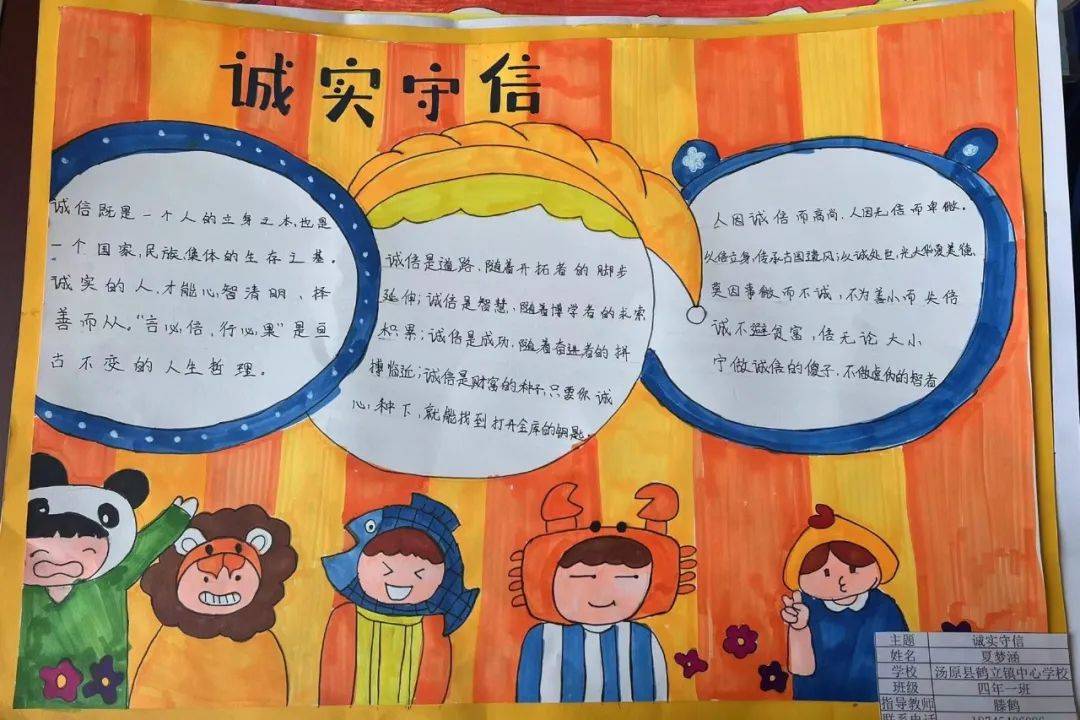 诚实守信
诚信既是一个人的立身之本,也是
一个国家,民族,集体的生存之基。
诚实的人,才能心智清明、择
善而从。“言必信,行必果”是亘
古不变的人生哲理。
诚信是道路,随着开拓者的脚步
延伸;诚信是智慧,随着博学者的求索
积累;诚信是成功,随着奋进者的拼
搏临近;诚信是财富的种子,只要你诚
心种下,就能找到打开金库的钥匙。
人因诚信而高尚,人因无信而卑微。
以信立身,传承古国遗风;以诚处世,光大华夏美德。
莫因事微而不诚,不为善小而失信
诚不避贫富,信无论大小
宁做诚信的傻子,不做虚伪的智者
主题 诚实守信
姓名 夏梦涵
学校 汤原县鹤立镇中心学校
班级 四年一班
指导教师 滕鹤